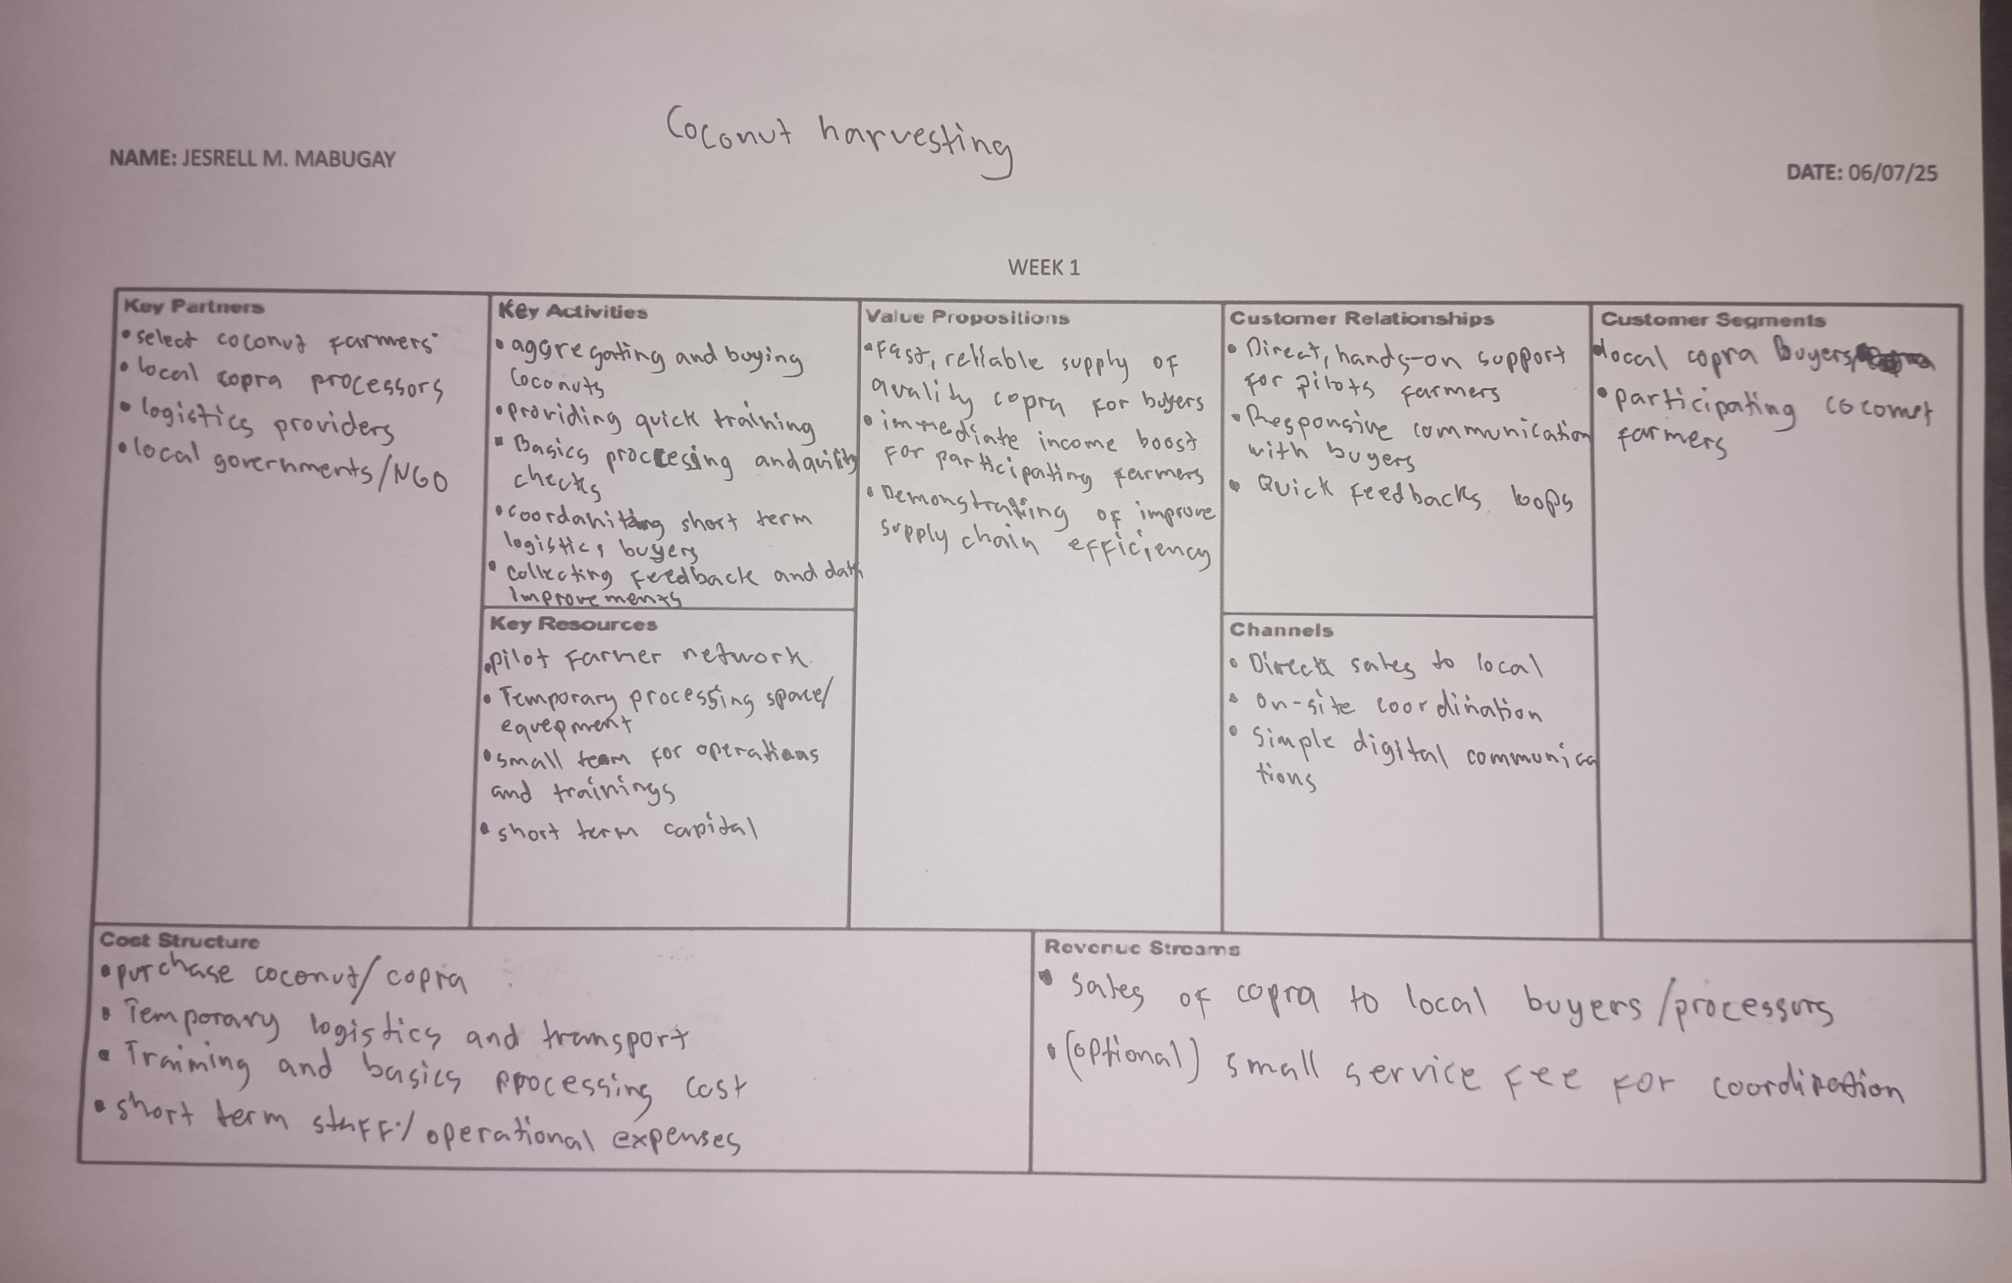 Coconut harvesting
NAME: JESRELL M. MABUGAY
DATE: 06/07/25
WEEK 1
Key Partners
• select coconut farmers
• local copra processors
• logistics providers
• local governments/NGO
Key Activities
• aggregating and buying
coconuts
• providing quick training
• Basics proccesing and
checks
• short term
logistics buyers
• collecting feedback and data
improvements
Key Resources
• pilot farmer network
• Temporary processing space/
equepment
• small team for operations
and trainings
• short term capital
Value Propositions
• Fast, reliable supply of
quality copra for buyers
• immediate income boost
for participating farmers
• Demonstrating of improve
supply chain efficiency
Customer Relationships
• Direct, hands-on support
for pilots farmers
• Responsive communication
with buyers
• Quick feedbacks loops
Channels
• Direct sales to local
• on-site coordination
• simple digital communica
tions
Customer Segments
local copra Buyers
• participating coconut
farmers
Cost Structure
• purchase coconut/copra
• Temporary logistics and transport
• Training and basics processing cost
• short term staff/operational expenses
Revenue Streams
• sales of copra to local buyers/processors
• (optional) small service fee for coordination